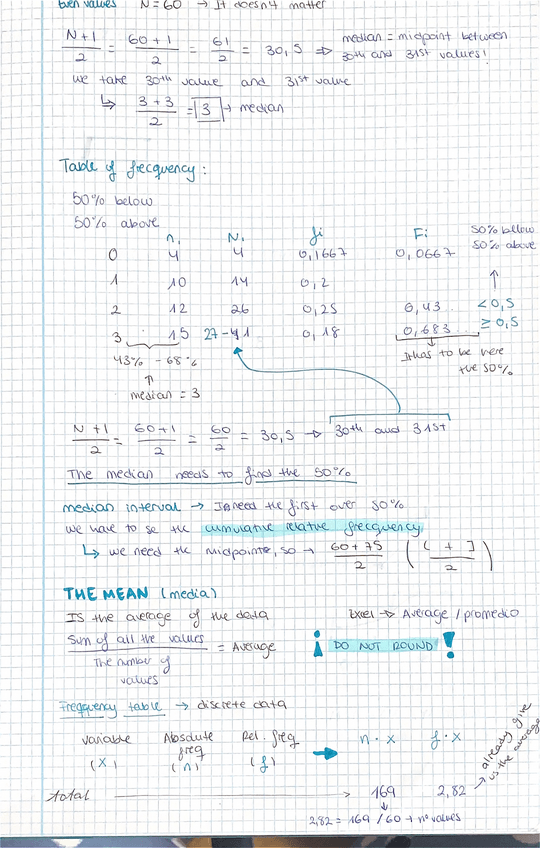 Even values N=60 → It doesn't matter
N+1/2 = 60+1/2 = 61/2 = 30,5 ⇒ median = midpoint between
30th and 31st values!
we take 30th value and 31st value
↳ 3+3/2 = 3 → median
Table of frecquency:
50% below
50% above
ni Ni fi Fi 50% bellow
50% above
0 4 4 0,1667 0,0667
1 10 14 0,2
2 12 26 0,25 0,43 <0,5
3 15 27-41 0,18 0,683... ≥0,5
43% - 68% It has to be here
the 50%
median = 3
N+1/2 = 60+1/2 = 60/2 = 30,5 → 30th and 31st
The median needs to find the 50%
median interval → I need the first over 50%
we have to se the cumulative relative frecquency
↳ we need the midpoints, so → 60+75/2 ( ( + ]/2 )
THE MEAN (media)
Is the average of the data Excel → Average / promedio
Sum of all the values/The number of values = Average ¡ DO NOT ROUND!
Freqquency table → discrete data
variable Absolute freq Rel. freq → n·x f·x
(x) (n) (f)
already give us the average
total → 169 2,82
2,82 = 169 / 60 → nº values